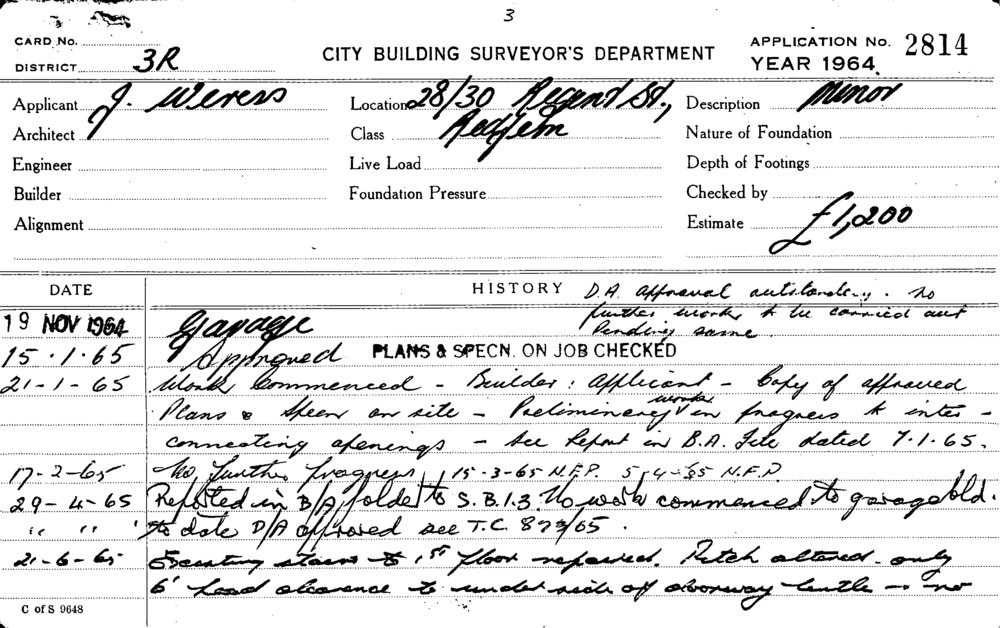 3
CARD No.
CITY BUILDING SURVEYOR'S DEPARTMENT
APPLICATION No. 2814
DISTRICT 3R
YEAR 1964
Applicant J. Weress
Location 28/30 Regent St.,
Description Minor
Architect
Class Redfern
Nature of Foundation
Engineer
Live Load
Depth of Footings
Builder
Foundation Pressure
Checked by
Alignment
Estimate £1,200
DATE
HISTORY
D.A. approval outstanding. No
further works to be carried out
pending same.
19 NOV 1964 Garage
15.1.65 Approved PLANS & SPECN. ON JOB CHECKED
21-1-65 Work Commenced - Builder: Applicant - Copy of approved
Plans & Specn on site - Preliminary works in progress to inter-
connecting openings - See Report in B.A. File dated 7.1.65.
17-2-65 No further progress 15-3-65 N.F.P. 5-4-65 N.F.P.
29-4-65 Reported in B/A folder to S.B.I.3. No work commenced to garage bld.
" " " to date D/A approved see T.C. 873/65.
21-6-65 Existing stairs to 1st floor repaired. Pitch altered - only
6' head clearance to underside of doorway - no
C of S 9648